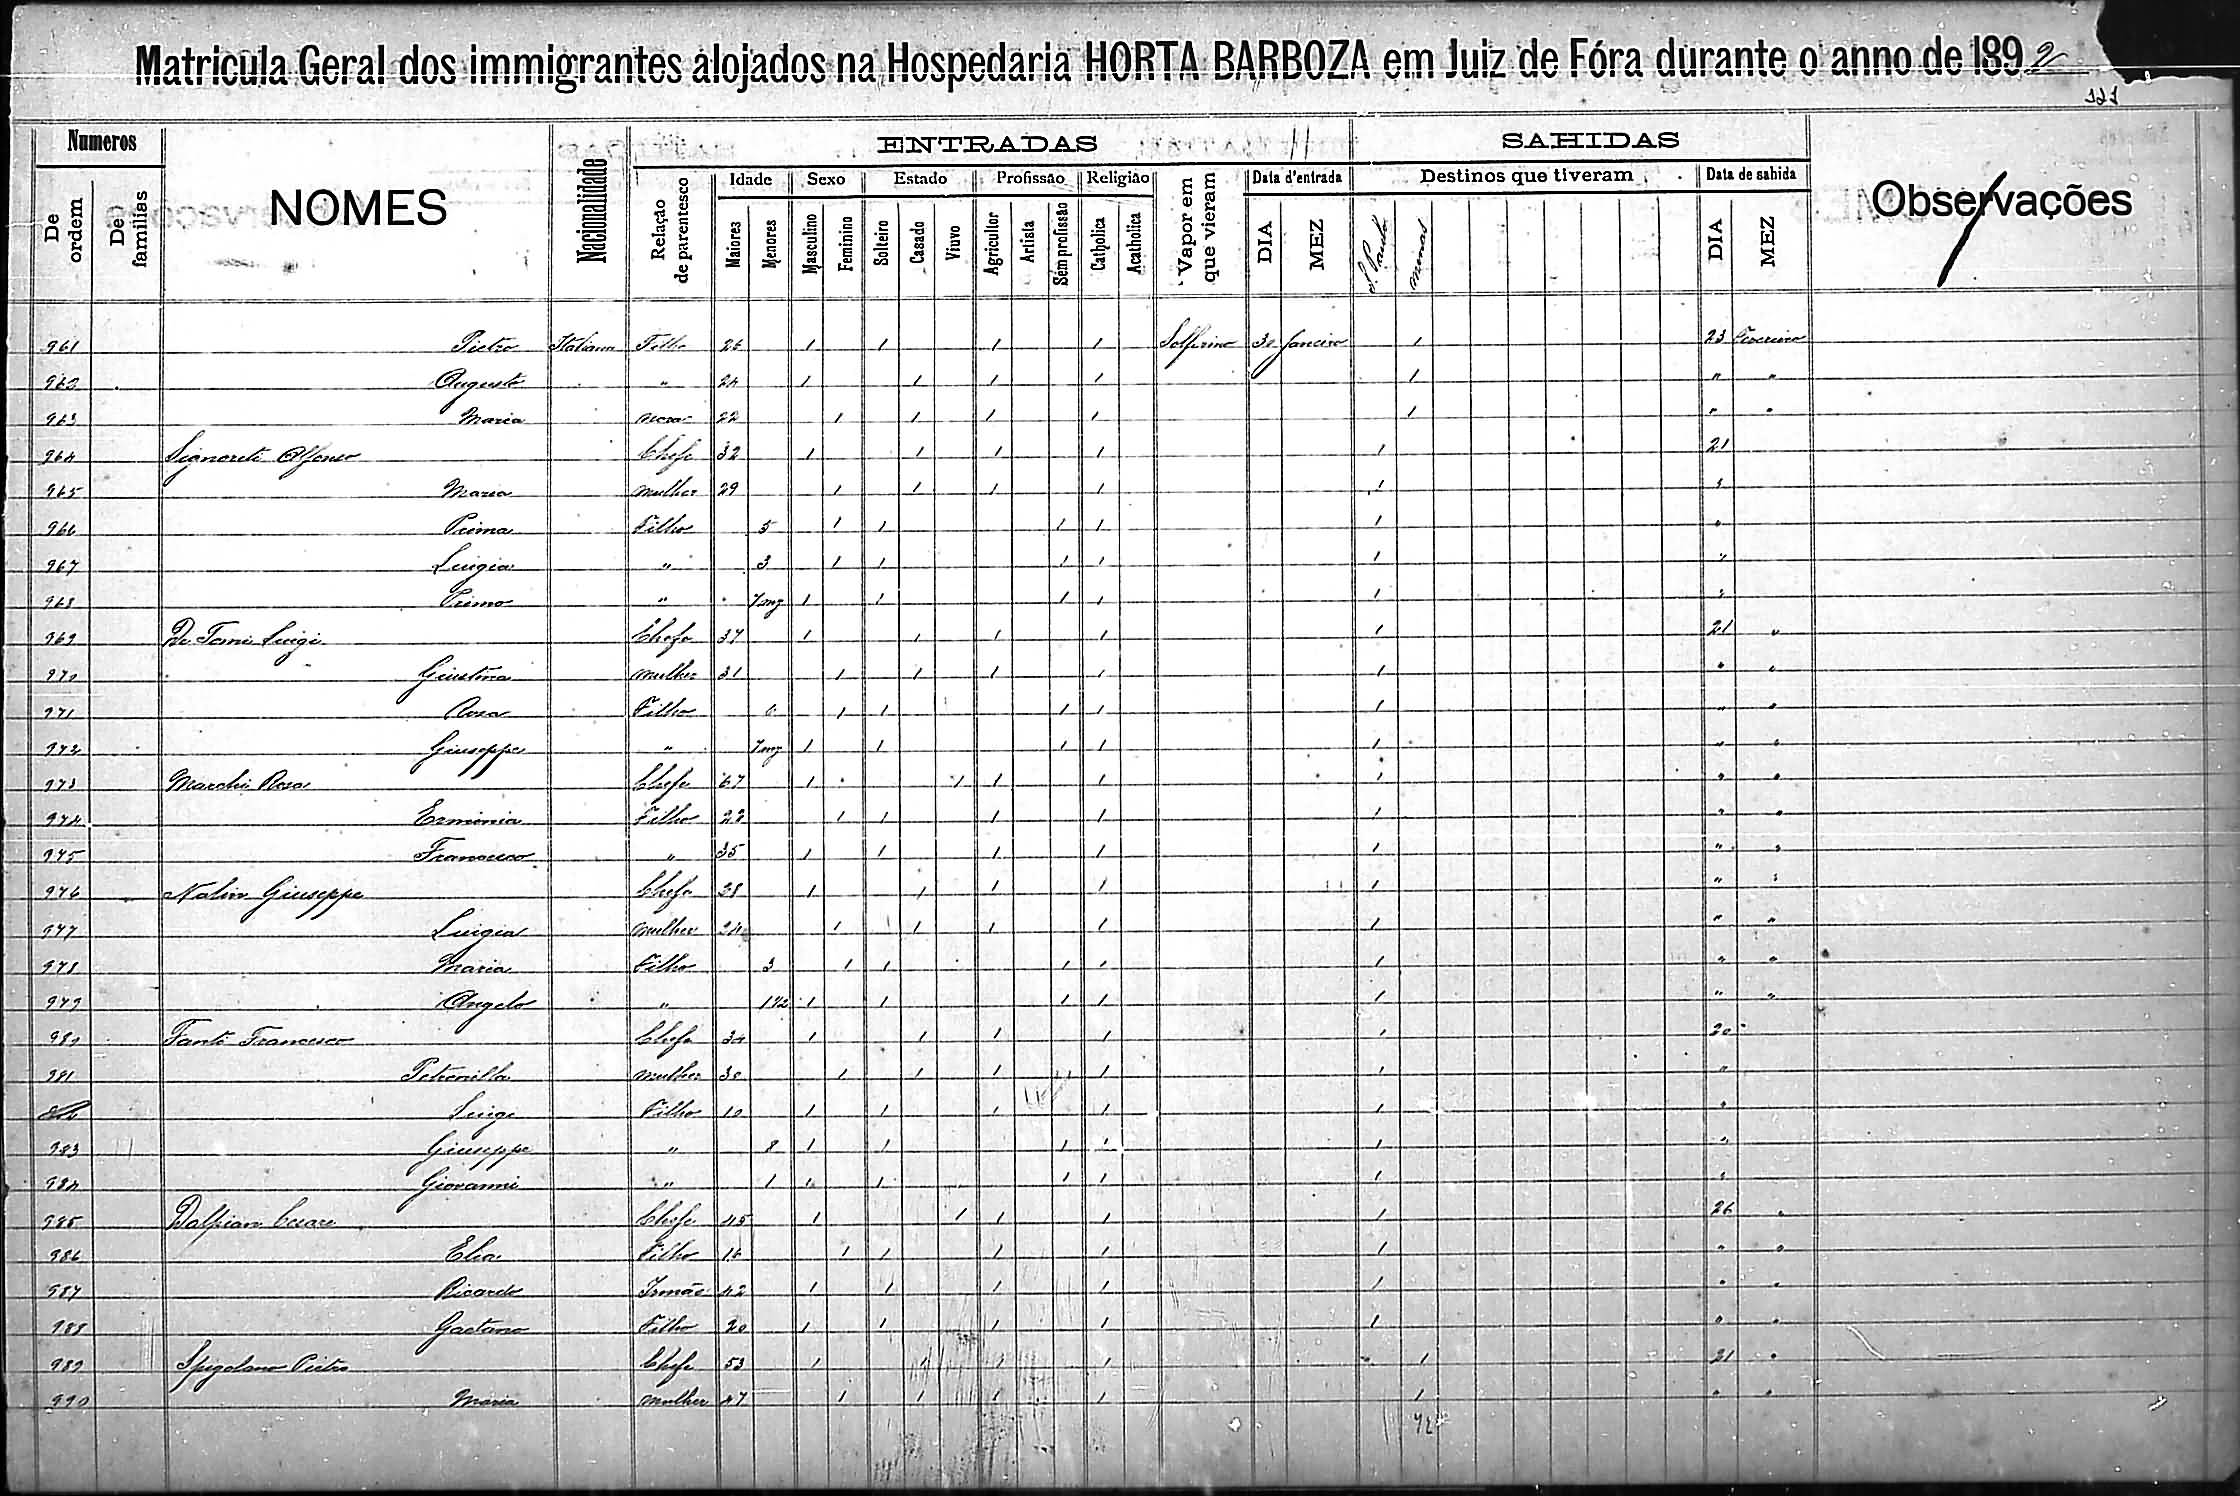 Matricula Geral dos immigrantes alojados na Hospedaria HORTA BARBOZA em Juiz de Fóra durante o anno de 1892
111
Numeros NOMES Nacionalidade ENTRADAS SAHIDAS Observações
De ordem De familiés Relação de parentesco Idade Sexo Estado Profissão Religião Vapor em que vieram Data d'entrada Destinos que tiveram Data de sahida
Maiores Menores Masculino Feminino Solteiro Casado Viuvo Agricultor Artista Sem profissão Catholica Acatholica DIA MEZ S. Paulo Minas DIA MEZ
961 Pietro Italiana Filho 26 1 1 1 1 Solferino 30 Janeiro 1 23 Fevereiro
962 Augusto " 24 1 1 1 1 1 " "
963 Maria nora 22 1 1 1 1 1 " "
964 Signoreti Alfonso Chefe 32 1 1 1 1 1 21
965 Maria mulher 29 1 1 1 1 1 "
966 Prima Filho 5 1 1 1 1 1 "
967 Luigia " 3 1 1 1 1 1 "
968 Primo " 7 mz 1 1 1 1 1 "
969 De Tomi Luigi Chefe 37 1 1 1 1 1 21 "
970 Giustina mulher 31 1 1 1 1 1 " "
971 Rosa Filho 6 1 1 1 1 1 " "
972 Giuseppe " 7 mz 1 1 1 1 1 " "
973 Marchi Rosa Chefe 67 1 1 1 1 1 " "
974 Erminia Filho 22 1 1 1 1 1 " "
975 Francesco " 35 1 1 1 1 1 " "
976 Nalin Giuseppe Chefe 28 1 1 1 1 1 " "
977 Luigia mulher 24 1 1 1 1 1 " "
978 Maria Filho 3 1 1 1 1 1 " "
979 Angelo " 1 1/2 1 1 1 1 1 " "
980 Fanti Francesco Chefe 34 1 1 1 1 1 20
981 Petronilla mulher 30 1 1 1 1 1 "
Luigi Filho 10 1 1 1 1 1 "
983 Giuseppe " 8 1 1 1 1 1 "
984 Giovanni " 1 1 1 1 1 1 "
985 Dalpian Cesare Chefe 45 1 1 1 1 1 26 "
986 Elia Filho 16 1 1 1 1 1 " "
987 Ricardo Irmão 42 1 1 1 1 1 " "
988 Gaetano Filho 20 1 1 1 1 1 " "
989 Spigolano Pietro Chefe 53 1 1 1 1 1 21 "
990 Maria mulher 47 1 1 1 1 1 " "